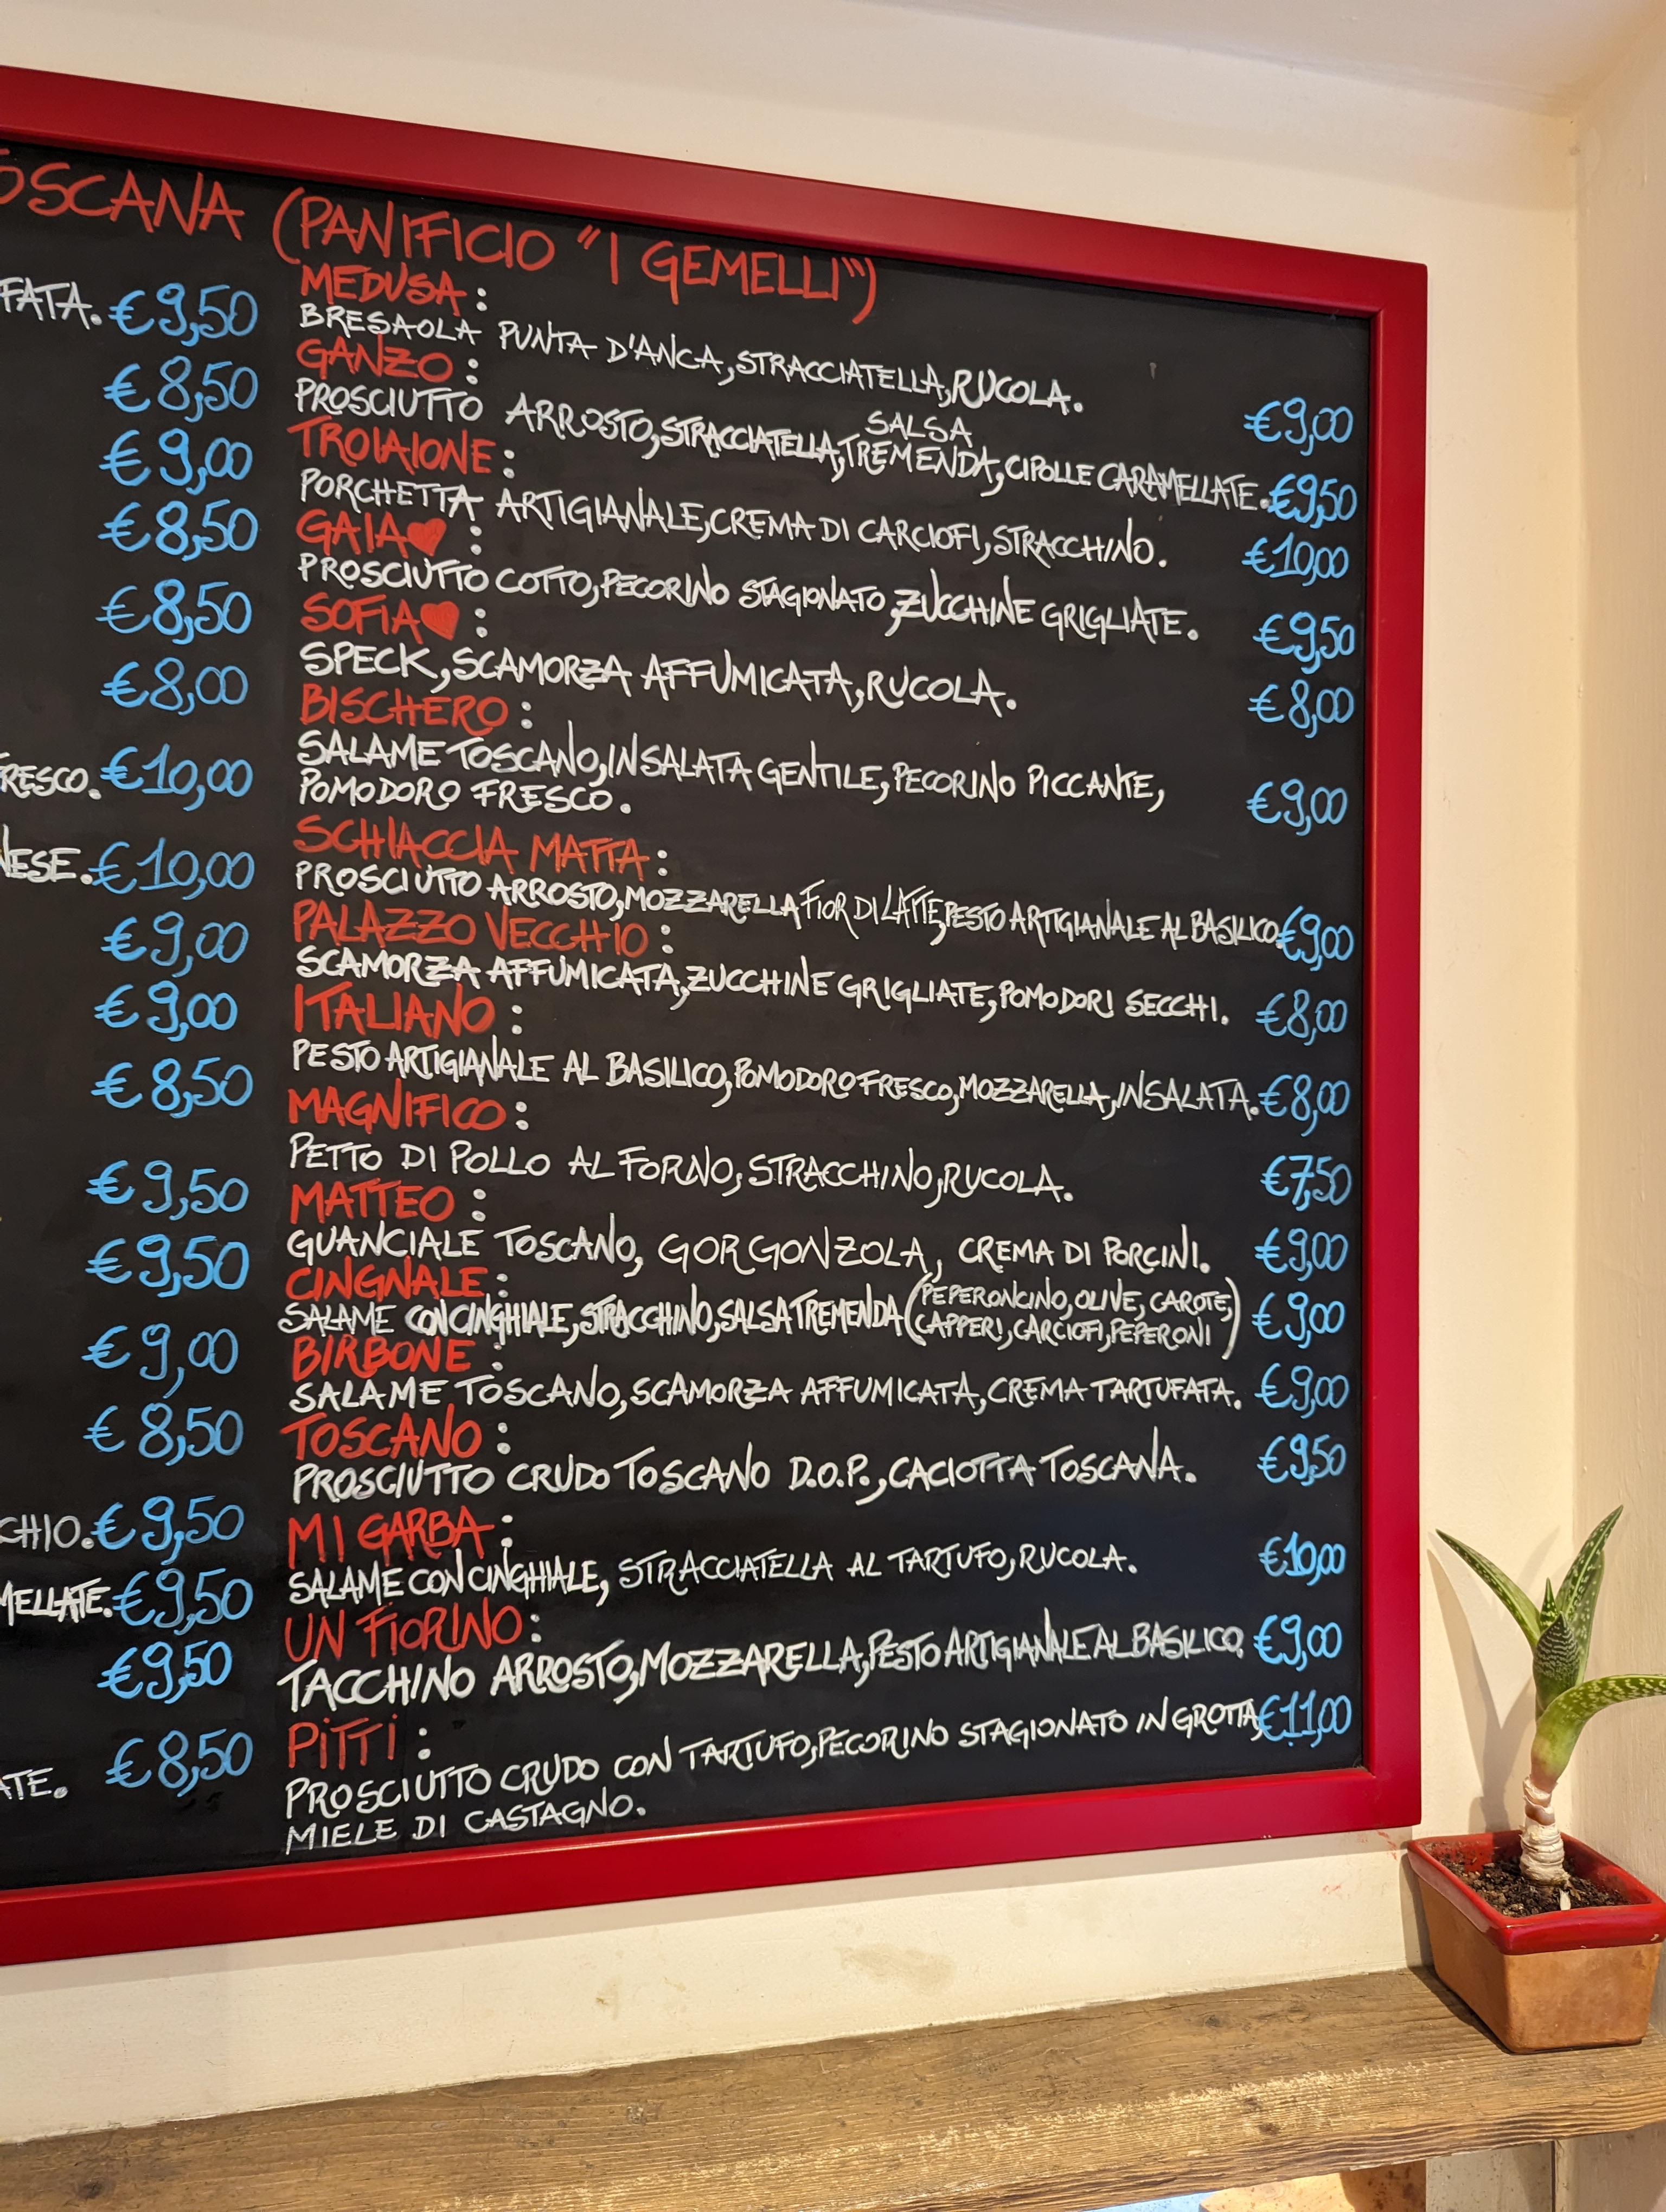 OSCANA (PANIFICIO "I GEMELLI")
FATA. €9,50
€8,50
€9,00
€8,50
€8,50
€8,00
RESCO. €10,00
NESE. €10,00
€9,00
€9,00
€8,50
€9,50
€9,50
€9,00
€8,50
CHIO. €9,50
MELLATE. €9,50
€9,50
ATE. €8,50
MEDUSA:
BRESAOLA PUNTA D'ANCA, STRACCIATELLA, RUCOLA. €9,00
GANZO:
PROSCIUTTO ARROSTO, STRACCIATELLA, SALSA TREMENDA, CIPOLLE CARAMELLATE. €9,50
TROIAIONE:
PORCHETTA ARTIGIANALE, CREMA DI CARCIOFI, STRACCHINO. €10,00
GAIA♥:
PROSCIUTTO COTTO, PECORINO STAGIONATO, ZUCCHINE GRIGLIATE. €9,50
SOFIA♥:
SPECK, SCAMORZA AFFUMICATA, RUCOLA. €8,00
BISCHERO:
SALAME TOSCANO, INSALATA GENTILE, PECORINO PICCANTE,
POMODORO FRESCO. €9,00
SCHIACCIA MATTA:
PROSCIUTTO ARROSTO, MOZZARELLA FIOR DI LATTE, PESTO ARTIGIANALE AL BASILICO. €9,00
PALAZZO VECCHIO:
SCAMORZA AFFUMICATA, ZUCCHINE GRIGLIATE, POMODORI SECCHI. €8,00
ITALIANO:
PESTO ARTIGIANALE AL BASILICO, POMODORO FRESCO, MOZZARELLA, INSALATA. €8,00
MAGNIFICO:
PETTO DI POLLO AL FORNO, STRACCHINO, RUCOLA. €7,50
MATTEO:
GUANCIALE TOSCANO, GORGONZOLA, CREMA DI PORCINI. €9,00
CINGNALE:
SALAME CON CINGHIALE, STRACCHINO, SALSA TREMENDA (PEPERONCINO, OLIVE, CAROTE, CAPPERI, CARCIOFI, PEPERONI) €9,00
BIRBONE:
SALAME TOSCANO, SCAMORZA AFFUMICATA, CREMA TARTUFATA. €9,00
TOSCANO:
PROSCIUTTO CRUDO TOSCANO D.O.P., CACIOTTA TOSCANA. €9,50
MI GARBA:
SALAME CON CINGHIALE, STRACCIATELLA AL TARTUFO, RUCOLA. €10,00
UN FIORINO:
TACCHINO ARROSTO, MOZZARELLA, PESTO ARTIGIANALE AL BASILICO. €9,00
PITTI:
PROSCIUTTO CRUDO CON TARTUFO, PECORINO STAGIONATO IN GROTTA, €11,00
MIELE DI CASTAGNO.